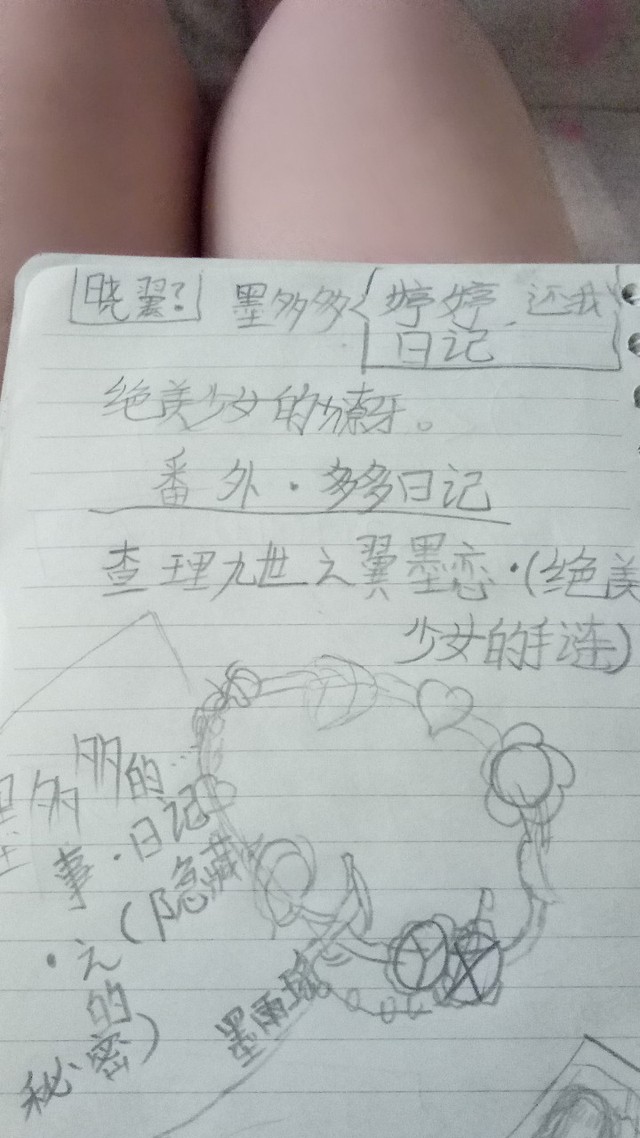 晓翼?
墨多多
婷婷.还我
日记
绝美少女的獠牙。
番外·多多日记
查理九世之翼墨恋·(绝美
少女的手涟)
墨多多的…
事·日记
(隐藏
·之的
秘密)
墨雨瑶